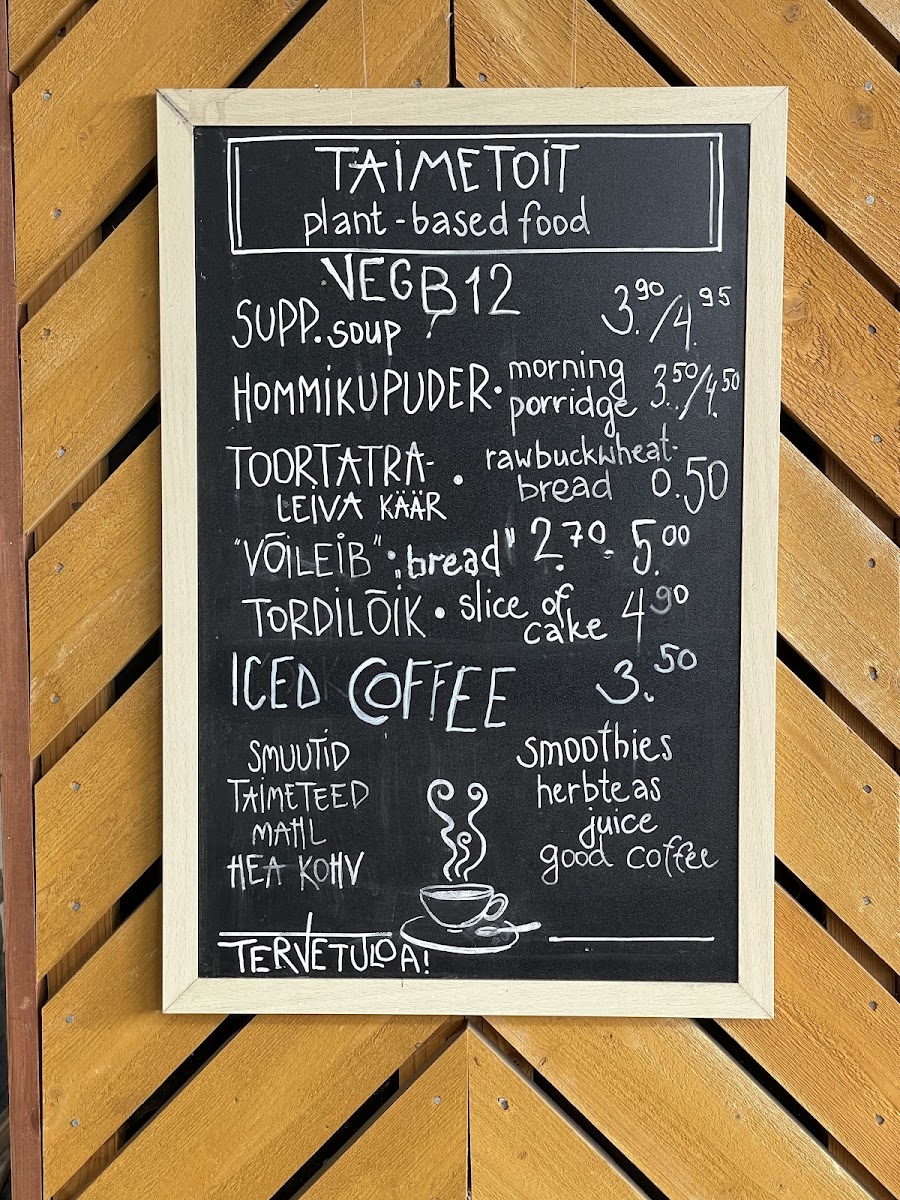 TAIMETOIT
plant-based food
VEG B12
SUPP. soup 3.90/4.95
HOMMIKUPUDER • morning porridge 3.50/4.50
TOORTATRA- • rawbuckwheat-
LEIVA KÄÄR bread 0.50
"VÕILEIB" • „bread" 2.70 - 5.00
TORDILÕIK • slice of cake 4.90
ICED COFFEE 3.50
SMUUTID smoothies
TAIMETEED herbteas
MAHL juice
HEA KOHV good coffee
TERVETULOA!